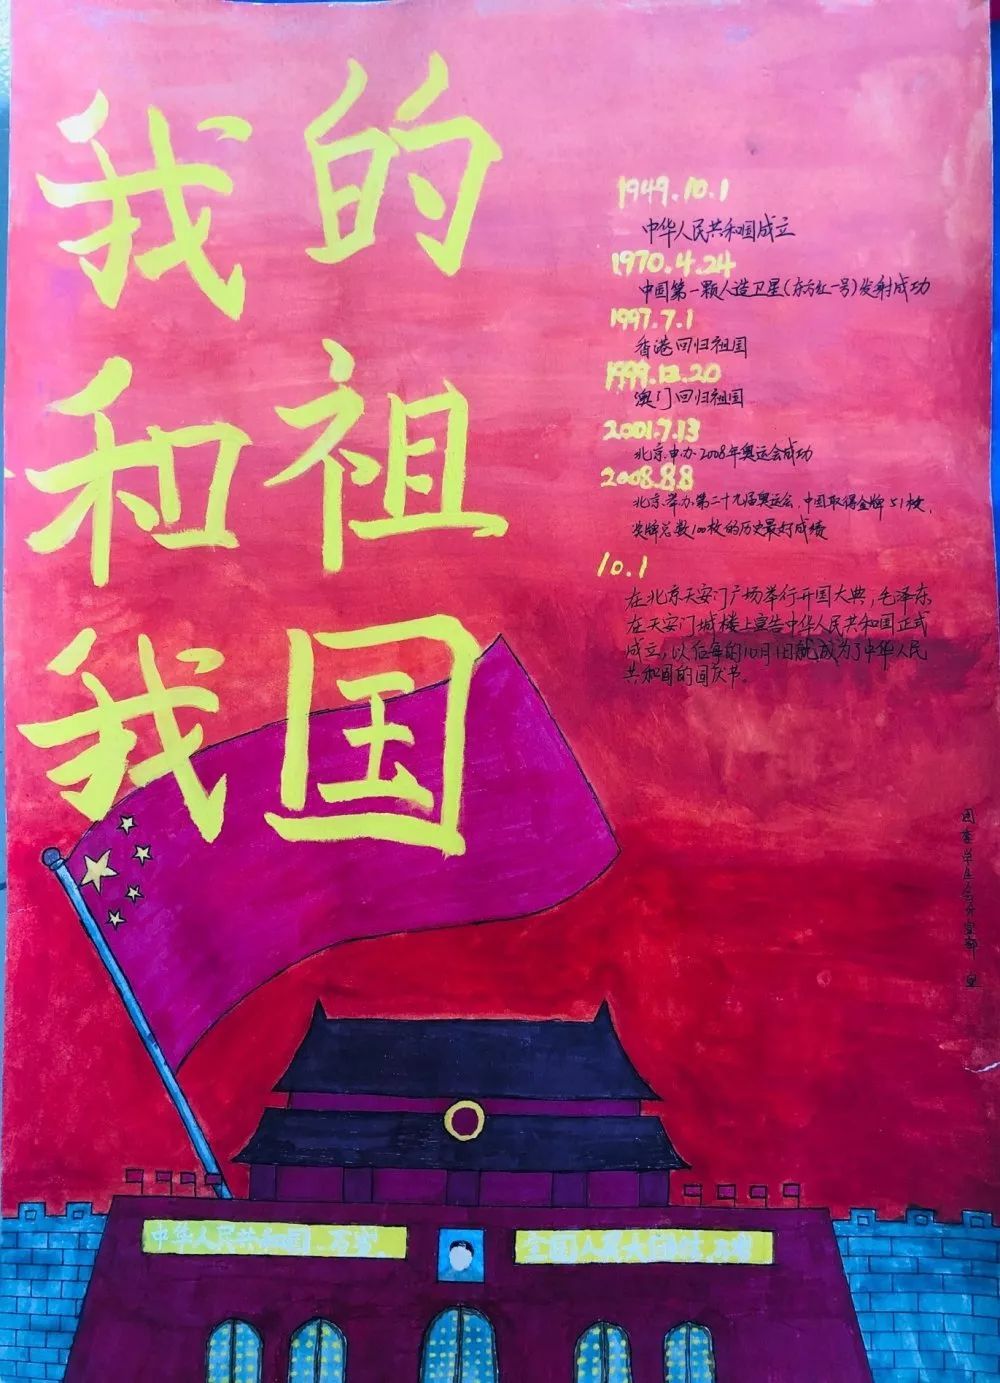 我的
和祖
我国
1949.10.1
中华人民共和国成立
1970.4.24
中国第一颗人造卫星(东方红一号)发射成功
1997.7.1
香港回归祖国
1999.12.20
澳门回归祖国
2001.7.13
北京申办2008年奥运会成功
2008.8.8
北京举办第二十九届奥运会,中国取得金牌51枚,
奖牌总数100枚的历史最好成绩
10.1
在北京天安门广场举行开国大典,毛泽东
在天安门城楼上宣告中华人民共和国正式
成立,以后每的10月1日就成为了中华人民
共和国的国庆节。
团委学生会
中华人民共和国 万岁
全国人民大团结 万岁